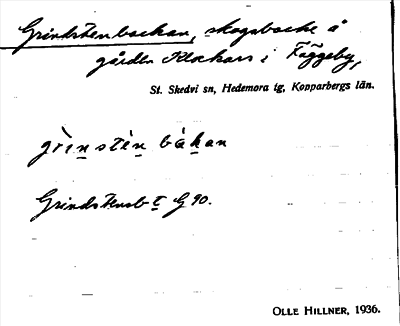 Grindstenbackan, skogsbacke å
gården Klockars i Fäggeby,
St. Skedvi sn, Hedemora tg, Kopparbergs län.
grìnstèn bàkan
Grindstensb- G 90.
OLLE HILLNER, 1936.